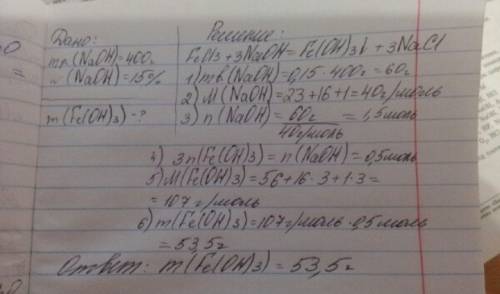 Дано:
mр(NaOH)=400г
w(NaOH)=15%
m(Fe(OH)3)-?
Решение:
FeCl3+3NaOH=Fe(OH)3↓+3NaCl
1) mв(NaOH)=0,15·400г=60г
2) M(NaOH)=23+16+1=40г/моль
3) n(NaOH)=60г/40г/моль=1,5моль
4) 3n(Fe(OH)3)=n(NaOH)=0,5моль
5) M(Fe(OH)3)=56+16·3+1·3=
=107г/моль
6) m(Fe(OH)3)=107г/моль·0,5моль
=53,5г
Ответ: m(Fe(OH)3)=53,5г